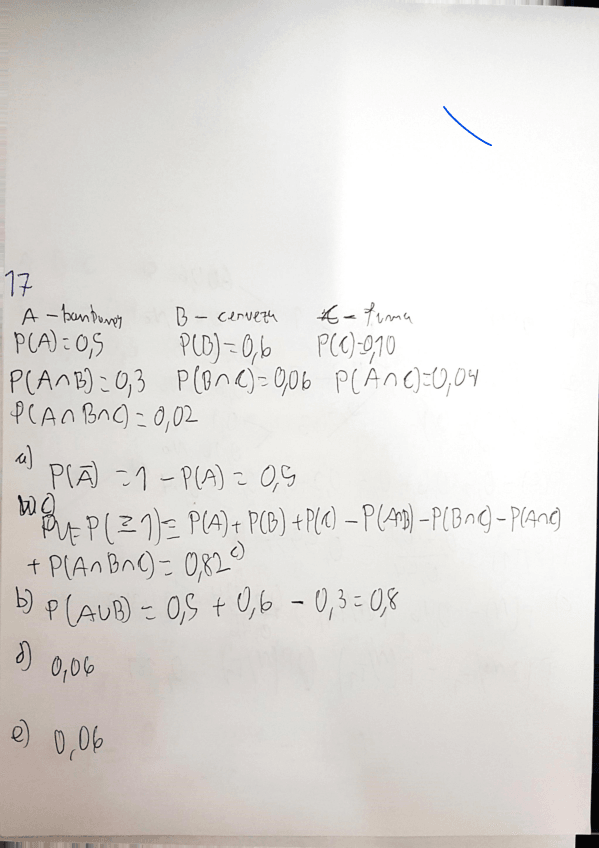 17
A - bambunoj B - cerveza C - fuma
P(A)=0,5 P(B)=0,6 P(C)=0,10
P(A∩B)=0,3 P(B∩C)=0,06 P(A∩C)=0,04
P(A∩B∩C)=0,02
a)
P(Ā) = 1 - P(A) = 0,5
c)
P(≥1)= P(A)+P(B)+P(C) - P(A∩B) - P(B∩C) - P(A∩C)
+ P(A∩B∩C) = 0,82 c)
b) P(A∪B) = 0,5 + 0,6 - 0,3 = 0,8
d) 0,06
e) 0,06